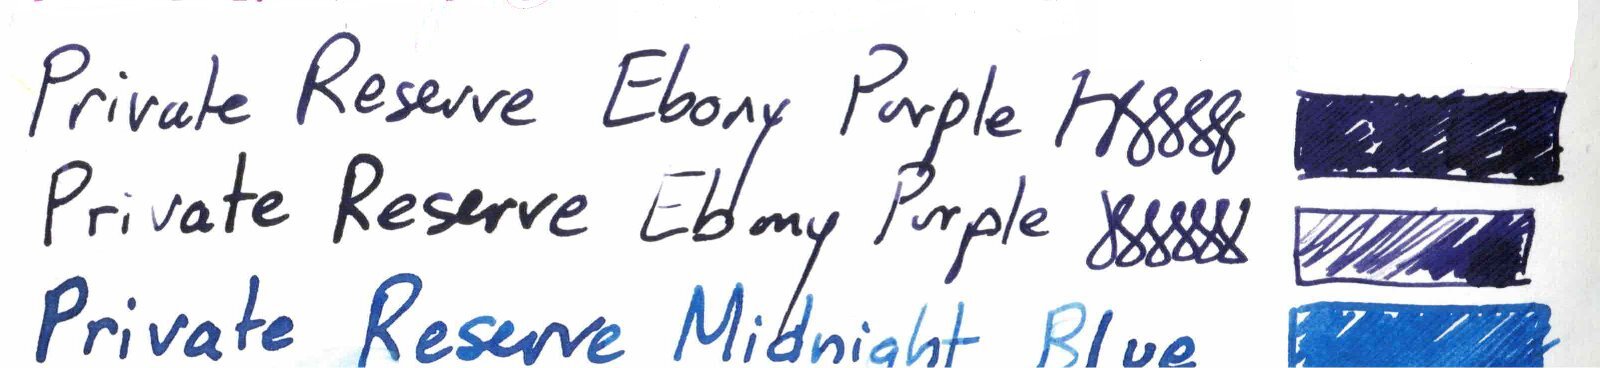 Private Reserve Ebony Purple
Private Reserve Ebony Purple
Private Reserve Midnight Blue